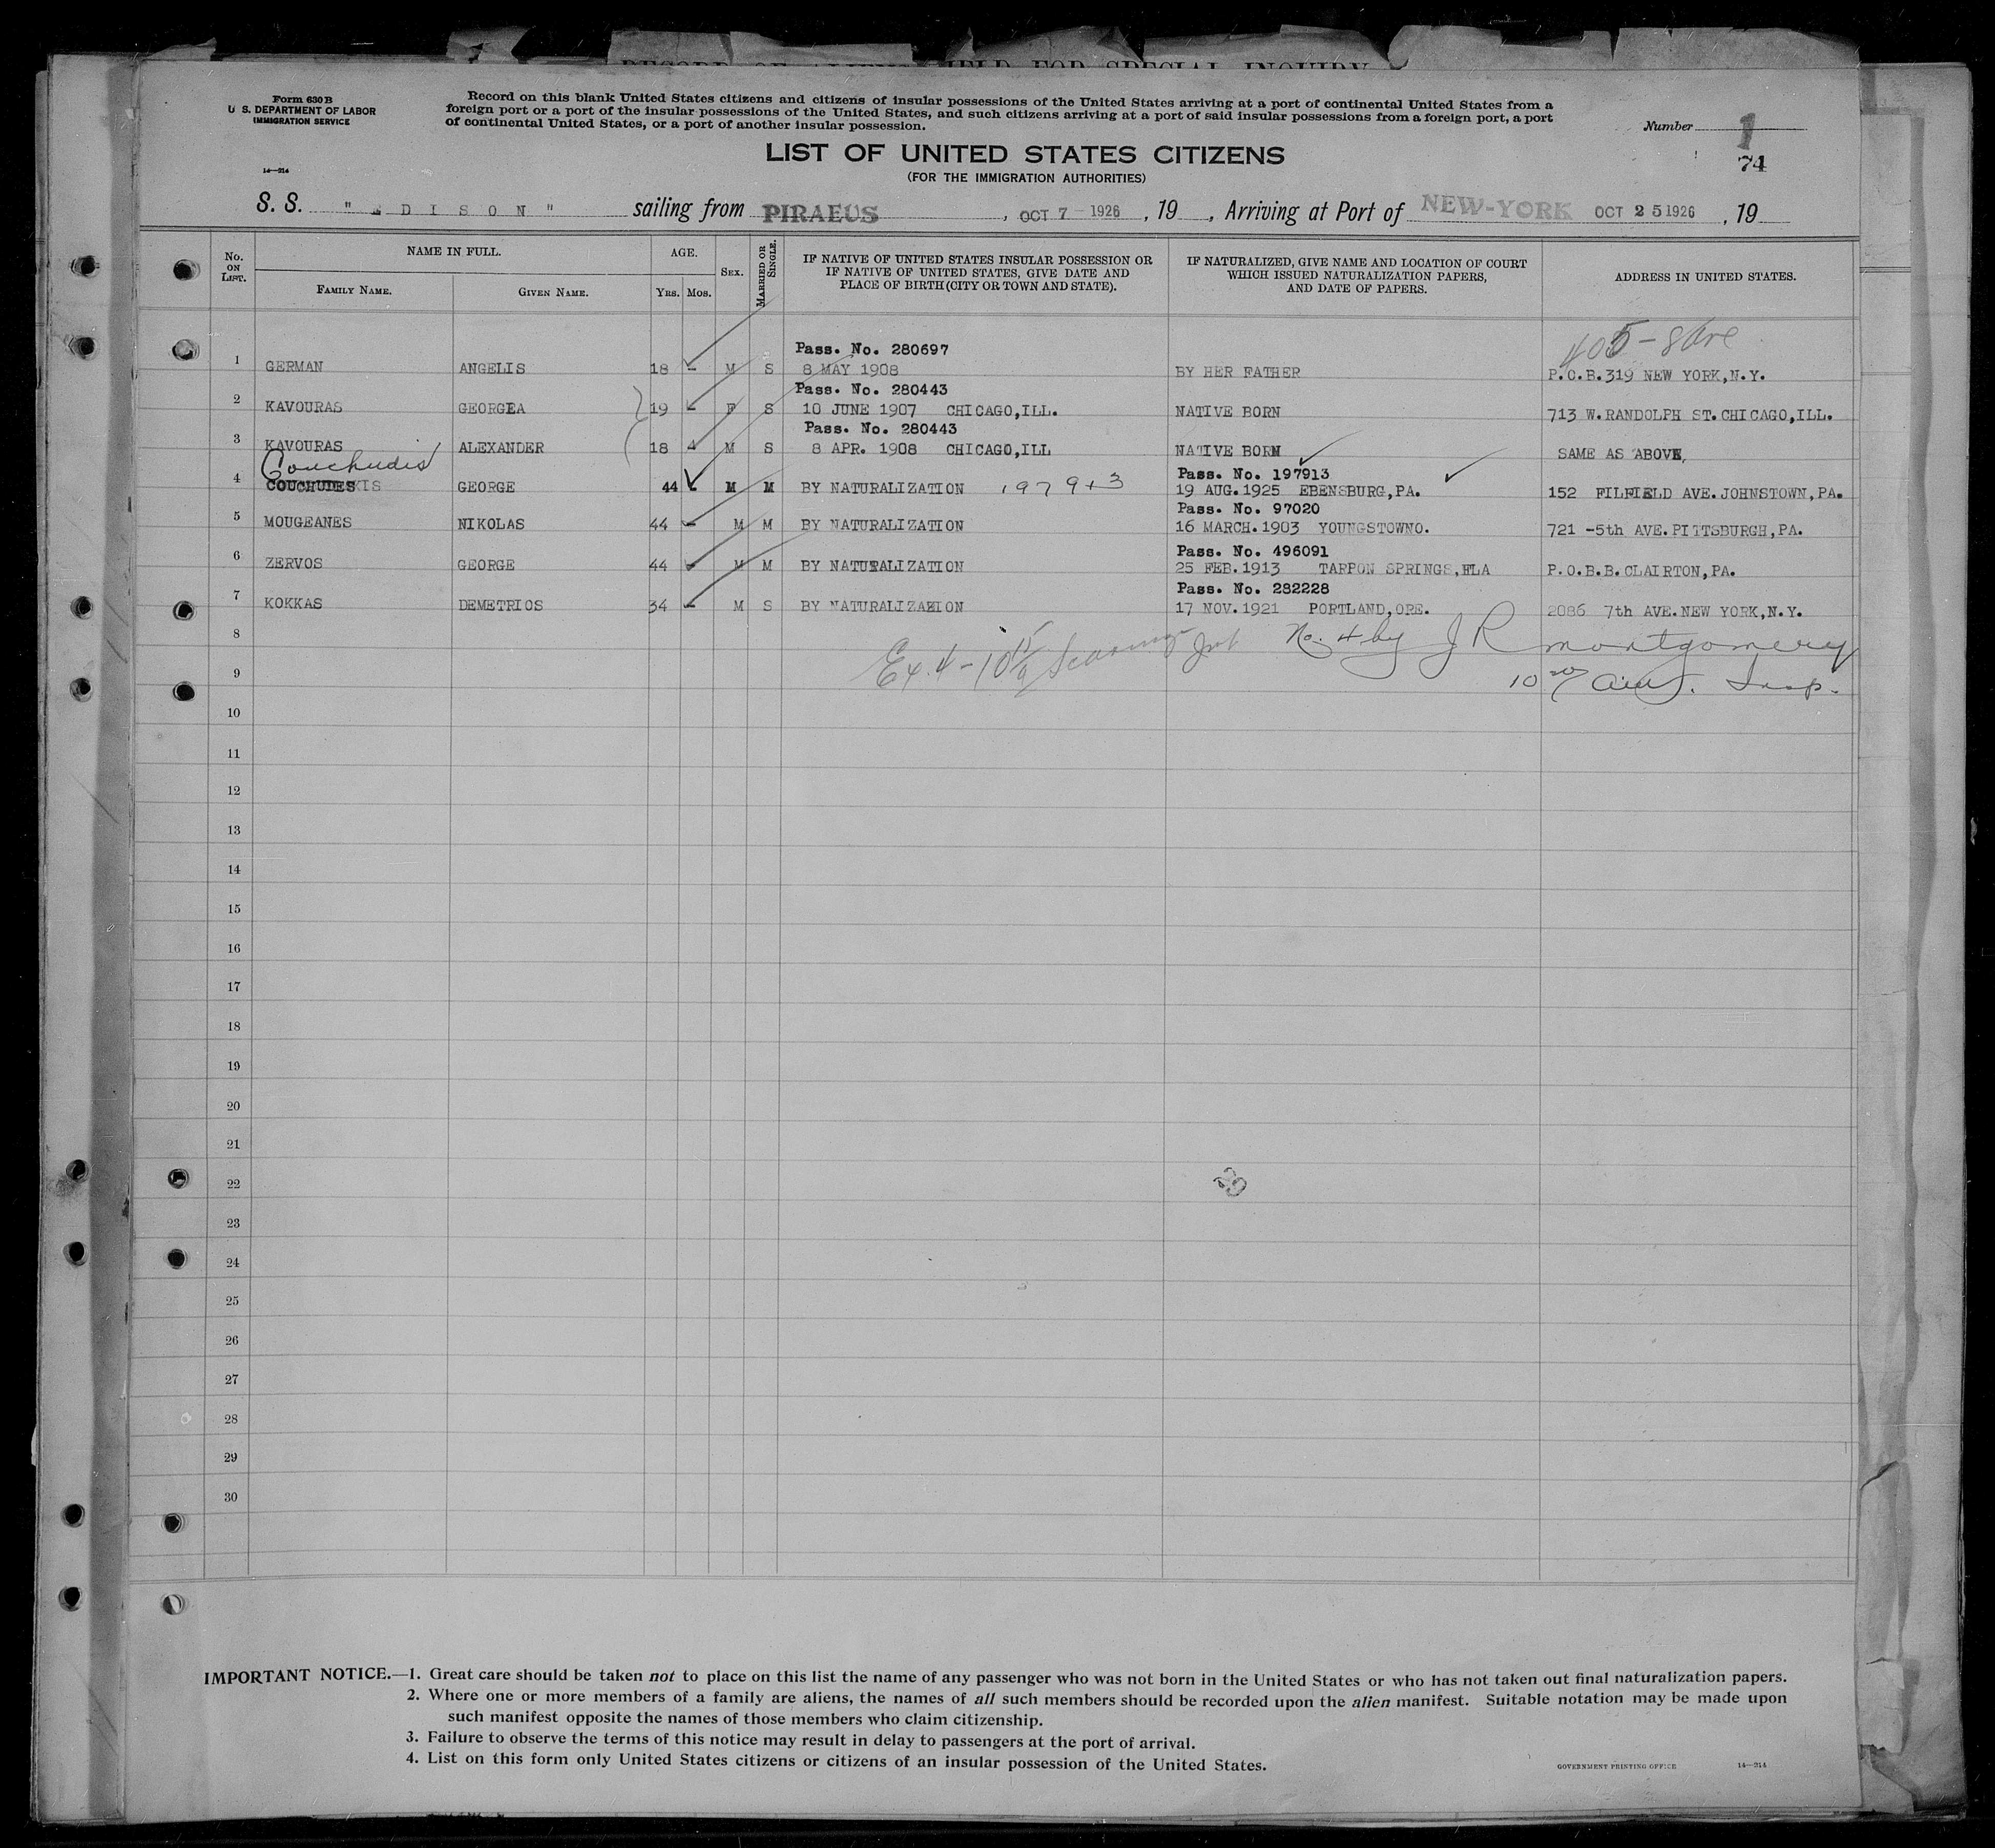 Form 630 B
U. S. DEPARTMENT OF LABOR
IMMIGRATION SERVICE
14—214
Record on this blank United States citizens and citizens of insular possessions of the United States arriving at a port of continental United States from a
foreign port or a port of the insular possessions of the United States, and such citizens arriving at a port of said insular possessions from a foreign port, a port
of continental United States, or a port of another insular possession.
Number 1
74
LIST OF UNITED STATES CITIZENS
(FOR THE IMMIGRATION AUTHORITIES)
S. S. "EDISON" sailing from PIRAEUS, OCT 7 - 1926, 19 , Arriving at Port of NEW-YORK OCT 25 1926, 19
No. ON LIST.
NAME IN FULL.
FAMILY NAME. GIVEN NAME.
AGE.
YRS. MOS.
SEX.
MARRIED OR SINGLE.
IF NATIVE OF UNITED STATES INSULAR POSSESSION OR
IF NATIVE OF UNITED STATES, GIVE DATE AND
PLACE OF BIRTH (CITY OR TOWN AND STATE).
IF NATURALIZED, GIVE NAME AND LOCATION OF COURT
WHICH ISSUED NATURALIZATION PAPERS,
AND DATE OF PAPERS.
ADDRESS IN UNITED STATES.
Pass. No. 280697
1 GERMAN ANGELIS 18 - M S 8 MAY 1908 BY HER FATHER P.O.B.319 NEW YORK,N.Y.
Pass. No. 280443
2 KAVOURAS GEORGEA 19 - F S 10 JUNE 1907 CHICAGO,ILL. NATIVE BORN 713 W.RANDOLPH ST.CHICAGO,ILL.
Pass. No. 280443
3 KAVOURAS ALEXANDER 18 - M S 8 APR. 1908 CHICAGO,ILL NATIVE BORN SAME AS ABOVE,
Couchudis
Pass. No. 197913
4 COUCHUDESKIS GEORGE 44 - M M BY NATURALIZATION 19 AUG.1925 EBENSBURG,PA. 152 FILFIELD AVE.JOHNSTOWN,PA.
Pass. No. 97020
5 MOUGEANES NIKOLAS 44 - M M BY NATURALIZATION 16 MARCH.1903 YOUNGSTOWNO. 721 -5th AVE.PITTSBURGH,PA.
Pass. No. 496091
6 ZERVOS GEORGE 44 - M M BY NATURALIZATION 25 FEB.1913 TARPON SPRINGS,FLA P.O.B.B.CLAIRTON,PA.
Pass. No. 282228
7 KOKKAS DEMETRIOS 34 - M S BY NATURALIZATION 17 NOV.1921 PORTLAND,ORE. 2086 7th AVE.NEW YORK,N.Y.
8 No. 4 by J R Montgomery
9
10
11
12
13
14
15
16
17
18
19
20
21
22
23
24
25
26
27
28
29
30
IMPORTANT NOTICE.—1. Great care should be taken not to place on this list the name of any passenger who was not born in the United States or who has not taken out final naturalization papers.
2. Where one or more members of a family are aliens, the names of all such members should be recorded upon the alien manifest. Suitable notation may be made upon
such manifest opposite the names of those members who claim citizenship.
3. Failure to observe the terms of this notice may result in delay to passengers at the port of arrival.
4. List on this form only United States citizens or citizens of an insular possession of the United States.
GOVERNMENT PRINTING OFFICE 14—214